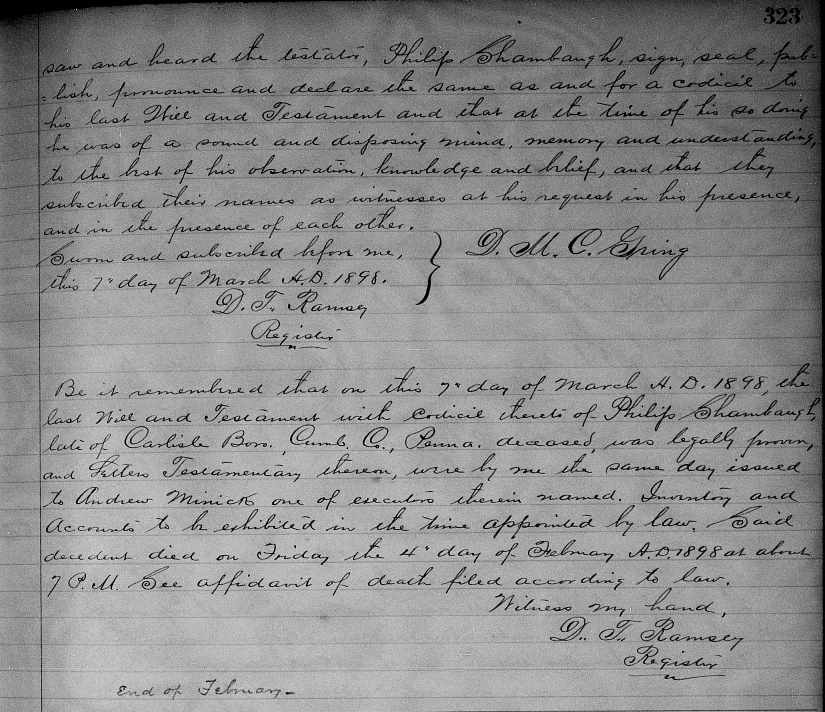 323
saw and heard the testator, Philip Shambaugh, sign, seal, pub-
lish, pronounce and declare the same as and for a codicil to
his last Will and Testament and that at the time of his so doing
he was of a sound and disposing mind, memory and understanding,
to the best of his observation, knowledge and belief, and that they
subscribed their names as witnesses at his request in his presence,
and in the presence of each other.
Sworn and subscribed before me,
this 7" day of March A.D. 1898.
D. M. C. Gring
D. T. Ramsey
Register
Be it remembered that on this 7" day of March A.D. 1898, the
last Will and Testament with codicil thereto of Philip Shambaugh,
late of Carlisle Boro., Cumb. Co., Penna. deceased, was legally proven,
and Letters Testamentary thereon, were by me the same day issued
to Andrew Minick one of executors therein named. Inventory and
Accounts to be exhibited in the time appointed by law. Said
decedent died on Friday the 4" day of February A.D. 1898 at about
7 P.M. See affidavit of death filed according to law.
Witness my hand,
D. T. Ramsey
Register
End of February -